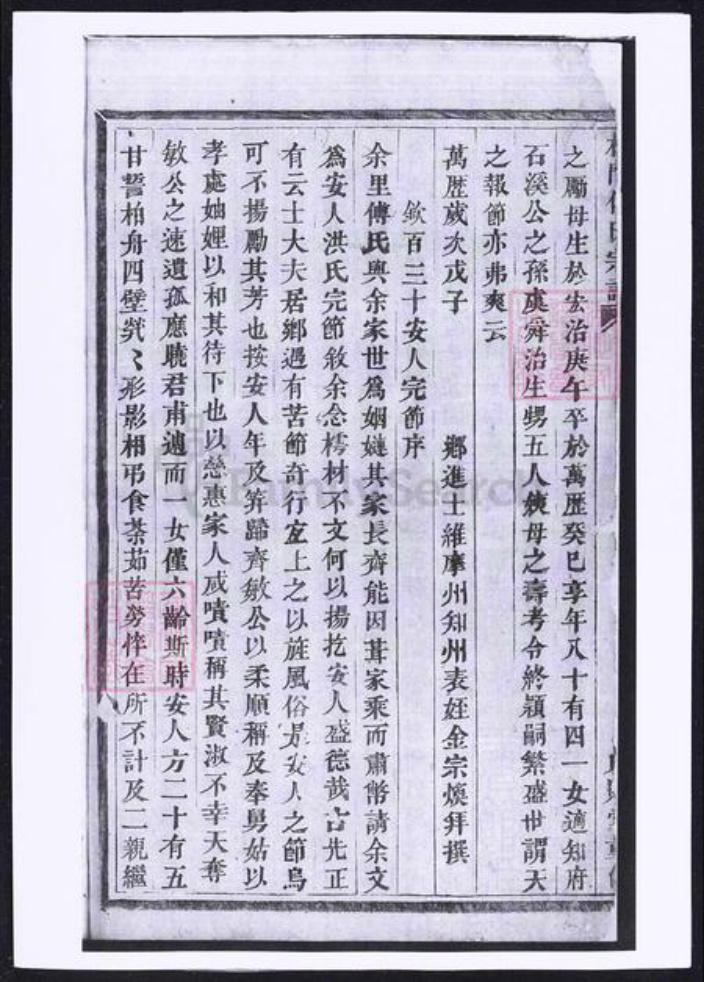 之勵母生於宏治庚午卒於萬歷癸巳享年八十有四一女適知府
石溪公之孫虞舜治生甥五人姨母之壽考令終頴嗣繁盛世謂天
之報節亦弗爽云
萬歷歲次戊子 鄉進士維摩州知州表姪金宗煥拜撰
欽百三十安人完節序
余里傅氏與余家世爲姻娃其家長齊能因葺家乘而肅幣請余文
爲安人洪氏完節敘余念樗材不文何以揚扢安人盛德哉古先正
有云士大夫居鄉遇有苦節奇行宜上之以旌風俗是安人之節烏
可不揚勵其芳也按安人年及笄歸齊敏公以柔順稱及奉舅姑以
孝處妯娌以和其待下也以慈惠家人咸嘖嘖稱其賢淑不幸天奪
敏公之速遺孤應曉君甫逾而一女僅六齡斯時安人方二十有五
甘誓柏舟四壁煢〻形影相弔食荼茹苦勞悴在所不計及二親繼
FamilySearch